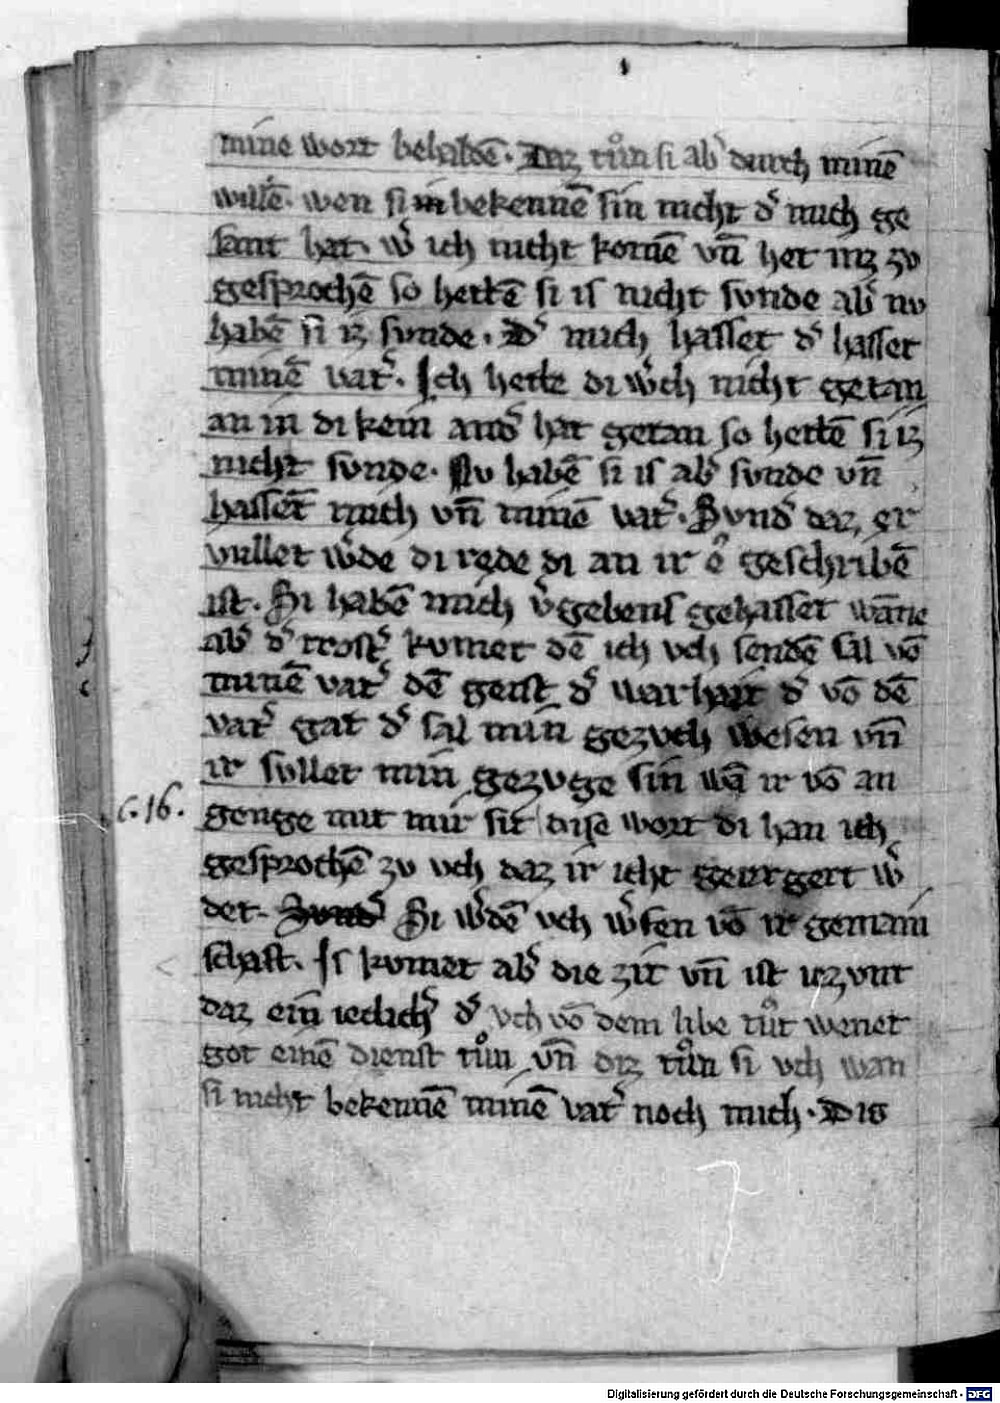 mine wort behaldē. Daz tůn si ab᷑ durch minē
willē. wen si in bekennē sin nicht d᷑ mich ge
sant hat. w᷑ ich nicht komē vn̄ het inz zv
gesprochē so hettē si is nicht svnde ab᷑ nv
habē si iz svnde. D᷑ mich hasset d᷑ hasset
minē vat᷑. Ich hette di w᷑ch nicht getan
an in di kein and᷑ hat getan so hettē si iz
nicht svnde. Nv habē si is ab᷑ svnde vn̄
hassēt mich vn̄ minē vat᷑. Svnd᷑ daz er
vullet w᷑de di rede di an ir e geschribē
ist. Si habē mich v᷑gebens gehasset wāne
ab᷑ d᷑ trost᷑ kvmet dē ich vch sendē sal vō
minē vat᷑ dē geist d᷑ warhait d᷑ vō dē
vat᷑ gat d᷑ sal min gezvch wesen vn̄
ir svllet min gezvge sin wā ir vō an
c. 16. genge mit mir sit dise wort di han ich
gesprochē zv vch daz ir icht geirgert w᷑
det. Svnd᷑ Si w᷑dē vch w᷑fen vō ir gemain
schaft. Is kvmet ab᷑ die zit vn̄ ist iczvnt
daz ein iclich᷑ d᷑ vch vō dem libe tůt wenet
got einē dienst tůn vn̄ diz tůn si vch wan
si nicht bekennē minē vat᷑ noch mich. Dis
Digitalisierung gefördert durch die Deutsche Forschungsgemeinschaft - DFG